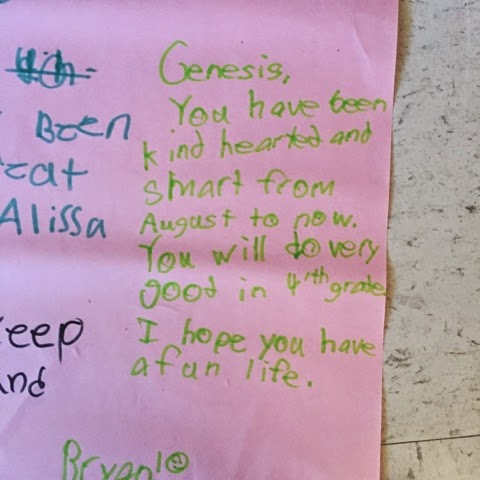 Genesis,
You have been
kind hearted and
smart from
August to now.
You will do very
good in 4'th grade
I hope you have
a fun life.
Been
eat
Alissa
eep
nd